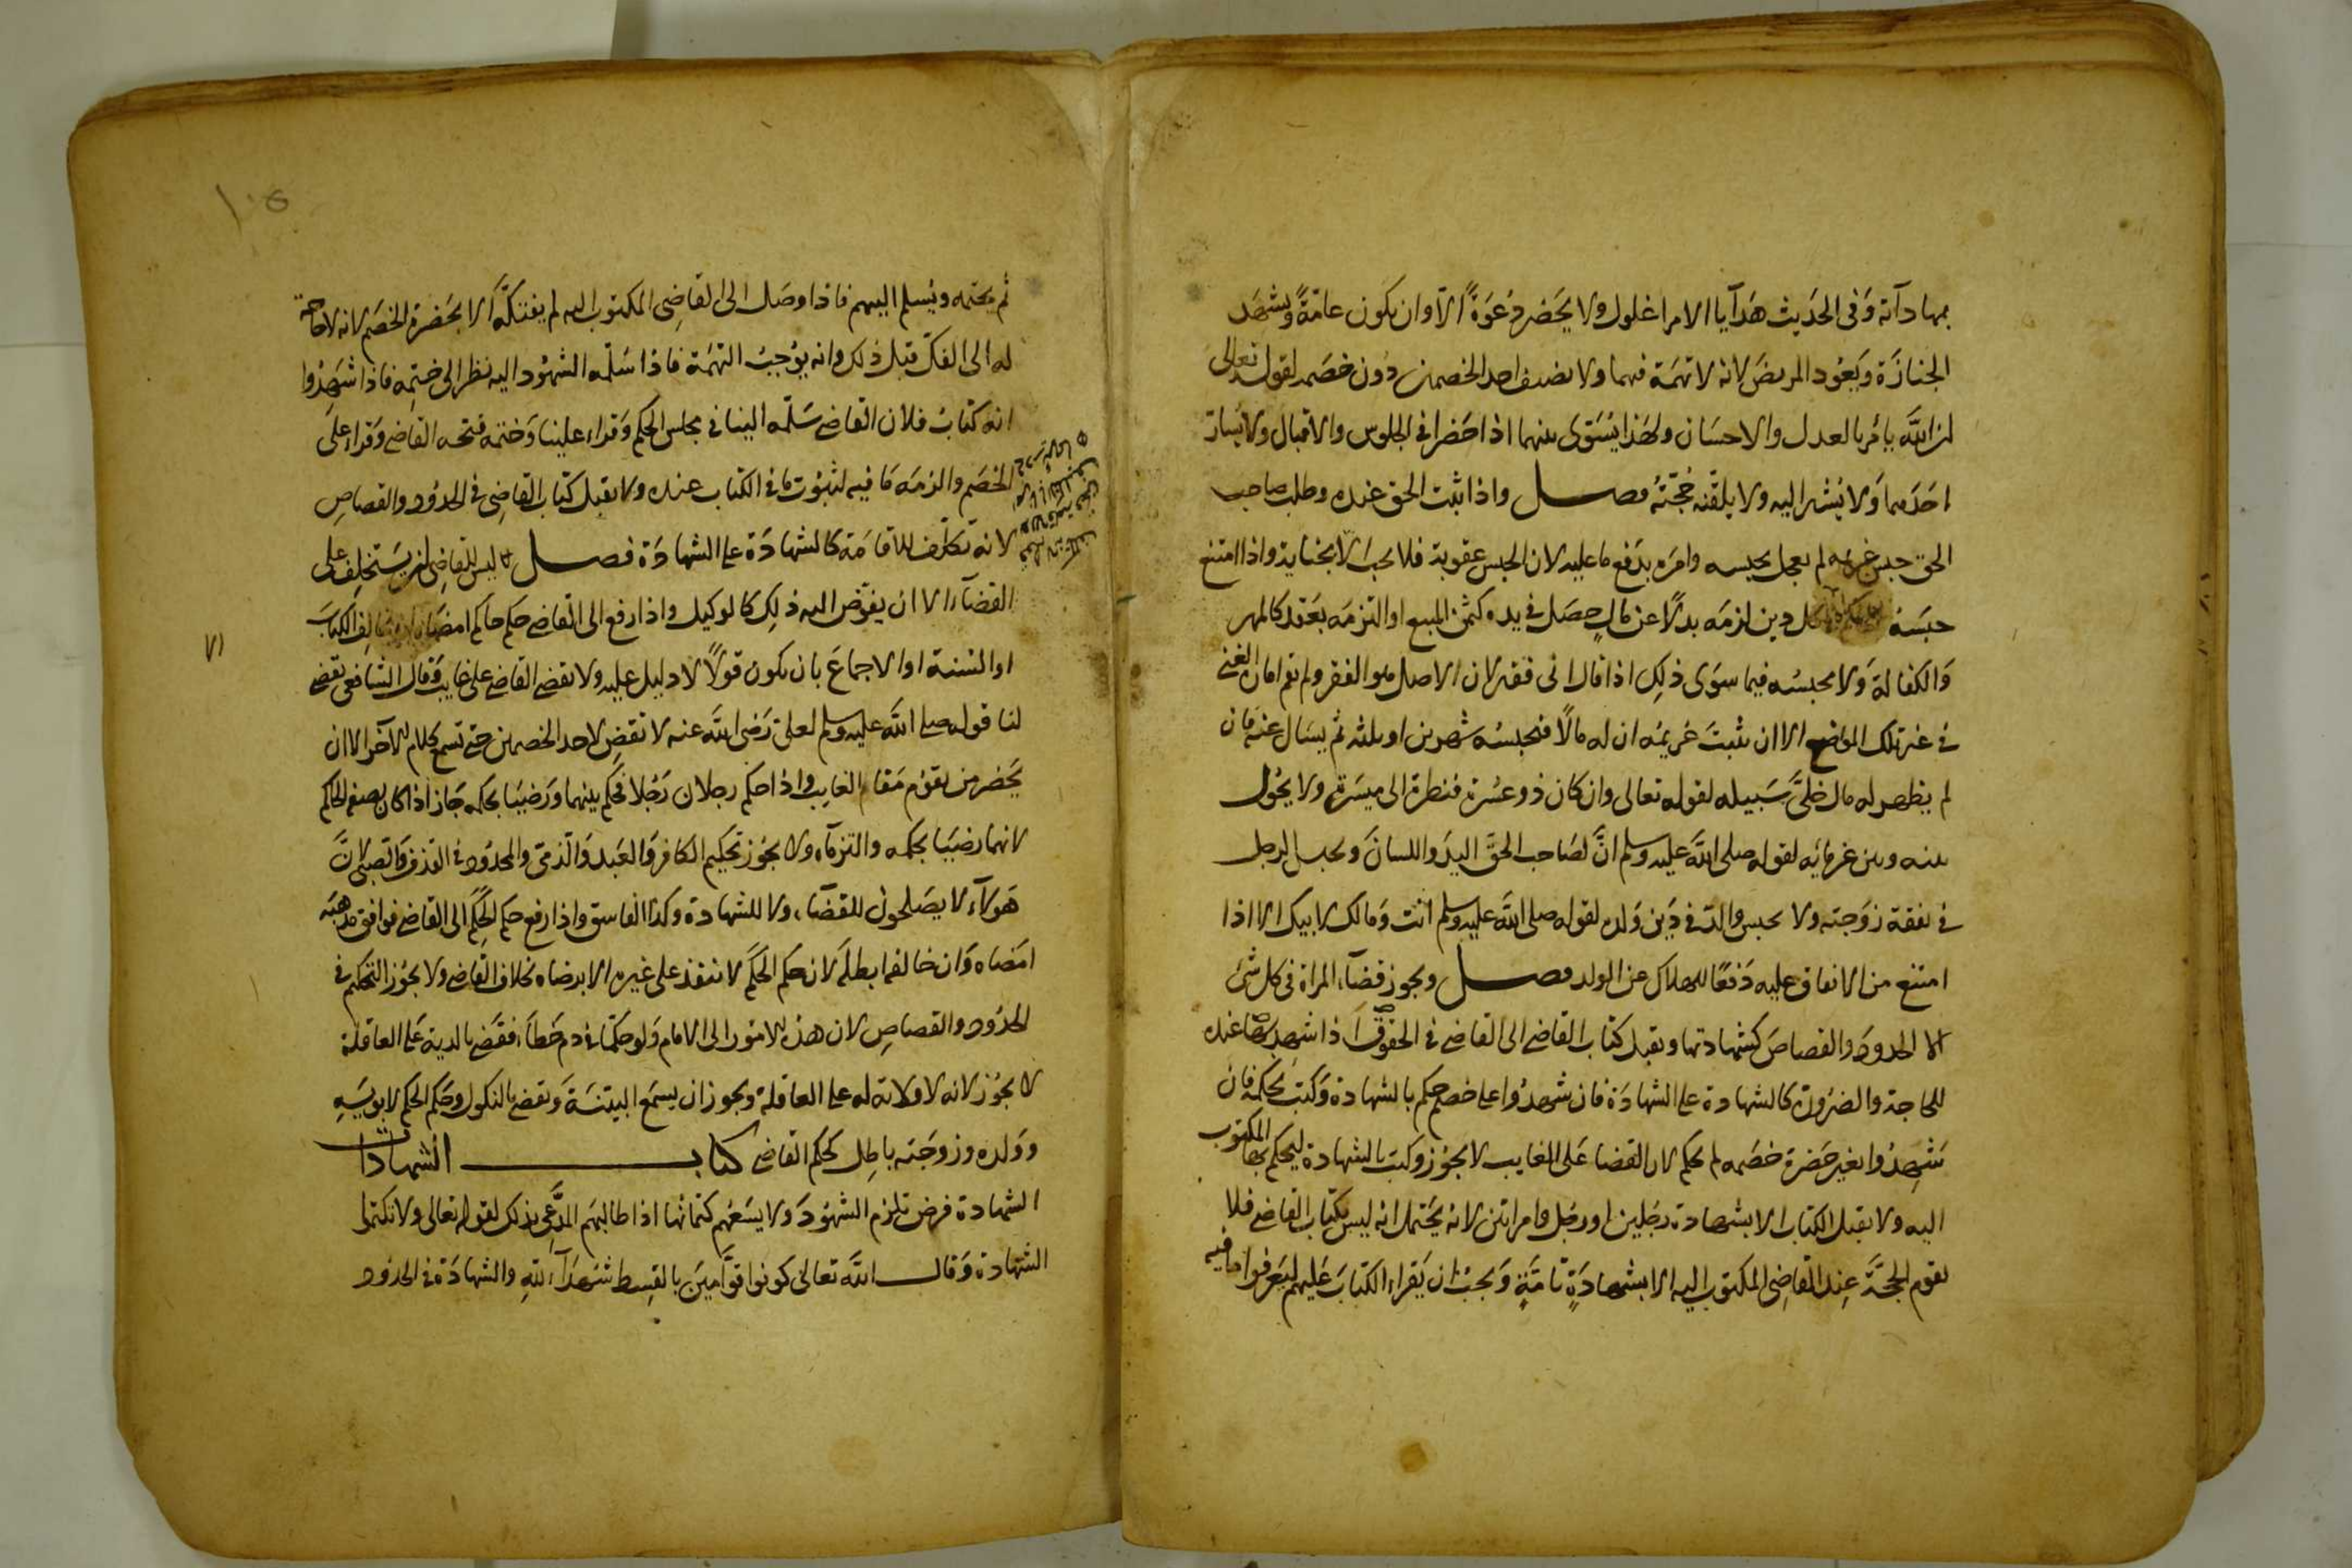 بمهاداته وفى الحديث هدآيا الامرا غلول ولا يحضر دعوةً الا وان يكون عامّةً ويشهد
الجنازة ويعود المريض لانه لا تهمة فيهما ولا يضيف احد الخصمين دون خصمه لقوله تعالى
ان الله يامر بالعدل والاحسان ولهذا يستوى بينهما اذا حضرا في الجلوس والاقبال ولا يسارّ
احدهما ولا يشير اليه ولا يلقنه حجّته فصل واذا ثبت الحق عنده وطلب صاحب
الحق حبس غريمه لم يعجل بحبسه وامره بدفع ما عليه لان الحبس عقوبة فلا يجب الا بجناية واذا امتنع
حبسه كل دين لزمه بدلاً عن مالٍ حصل في يده كثمن المبيع او التزمه بعقد كالمهر
والكفالة ولا يحبسه فيما سوى ذلك اذا قال انى فقير لان الاصل هو الفقر ولم تقم امارة الغنى
في غير تلك المواضع الا ان يثبت غريمه ان له مالاً فيحبسه شهرين او ثلثه ثم يسال عنه فان
لم يظهر له مال خلىّ سبيله لقوله تعالى وان كان ذو عسرة فنظرة الى ميسرة ولا يحول
بينه وبين غرمائه لقوله صلى الله عليه وسلم انّ لصاحب الحقّ اليد واللسان ويحبس الرجل
في نفقة زوجته ولا يحبس والد في دين ولده لقوله صلى الله عليه وسلم انت ومالك لابيك الا اذا
امتنع من الانفاق عليه دفعًا للهلاك عن الولد فصل ويجوز قضآء المراة في كل شئ
الا الحدود والقصاص كشهادتها ويقبل كتاب القاضي الى القاضي في الحقوق اذا شهد بها عنده
للحاجة والضرورة كالشهادة على الشهادة فان شهدوا على خصم حكم بالشهادة وكتب بحكمه فان
شهدوا بغير حضرة خصمه لم يحكم لان القضا على الغايب لا يجوز وكتب بالشهادة ليحكم بها المكتوب
اليه ولا يقبل الكتاب الا بشهادة رجلين او رجل وامراتين لانه يحتمل انه ليس بكتاب القاضي فلا
يقوم الحجّة عند القاضي المكتوب اليه الا بشهادةٍ تامّةٍ ويجب ان يقراء الكتاب عليهم ليعرفوا ما فيه
ثم يختمه ويسلم اليهم فاذا وصل الى القاضي المكتوب اليه لم يفتكّه الا بحضرة الخصم لانه لا حاجة
له الى الفكّ قبل ذلك وانه يوجب التهمة فاذا سلمه الشهود اليه نظر الى ختمه فاذا شهدوا
انه كتاب فلان القاضي سلمه الينا في مجلس الحكم وقراه علينا وختمه فتحه القاضي وقراه على
الخصم والزمه ما فيه لثبوت ما في الكتاب عنده ولا يقبل كتاب القاضي في الحدود والقصاص
لانه تكلّف للاقامة كالشهادة على الشهادة فصل ليس للقاضي ان يستخلف على
القضآء الا ان يفوّض اليه ذلك كالوكيل واذا رفع الى القاضي حكم حاكم امضاه الا ان يخالف الكتاب
او السنة او الاجماع بان يكون قولاً لا دليل عليه ولا يقضي القاضي على غايب وقال الشافعي يقضي
لنا قوله صلى الله عليه وسلم لعلى رضى الله عنه لا تقض لاحد الخصمين حتى تسمع كلام الآخر الا ان
يحضر من يقوم مقام الغايب واذا حكم رجلان رجلا فحكم بينهما ورضيا بحكمه جاز اذا كان بصفة الحاكم
لانهما رضيا بحكمه والتزماه ولا يجوز تحكيم الكافر والعبد والذمىّ والمحدود في القذف والصبى لانّ
هولآء لا يصلحون للقضاء ولا للشهادة وكذا الفاسق واذا رفع حكم الحكم الى القاضي فوافق مذهبه
امضاه وان خالفه ابطله لان حكم الحكم لا ينفذ على غيره الا برضاه بخلاف القاضي ولا يجوز التحكيم في
الحدود والقصاص لان هذه الامور الى الامام ولو حكّما في دم خطأ فقضى بالدية على العاقلة
لا يجوز لانه لا ولاية له على العاقلة ويجوز ان يسمع البينة ويقضي بالنكول وحكم الحكم لابويه
وولده وزوجته باطل كحكم القاضي كتاب الشهادات
الشهادة فرض تلزم الشهود ولا يسعهم كتمانها اذا طالبهم المدّعى بذلك لقوله تعالى ولا تكتموا
الشهادة وقال الله تعالى كونوا قوّامين بالقسط شهدآء لله والشهادة في الحدود